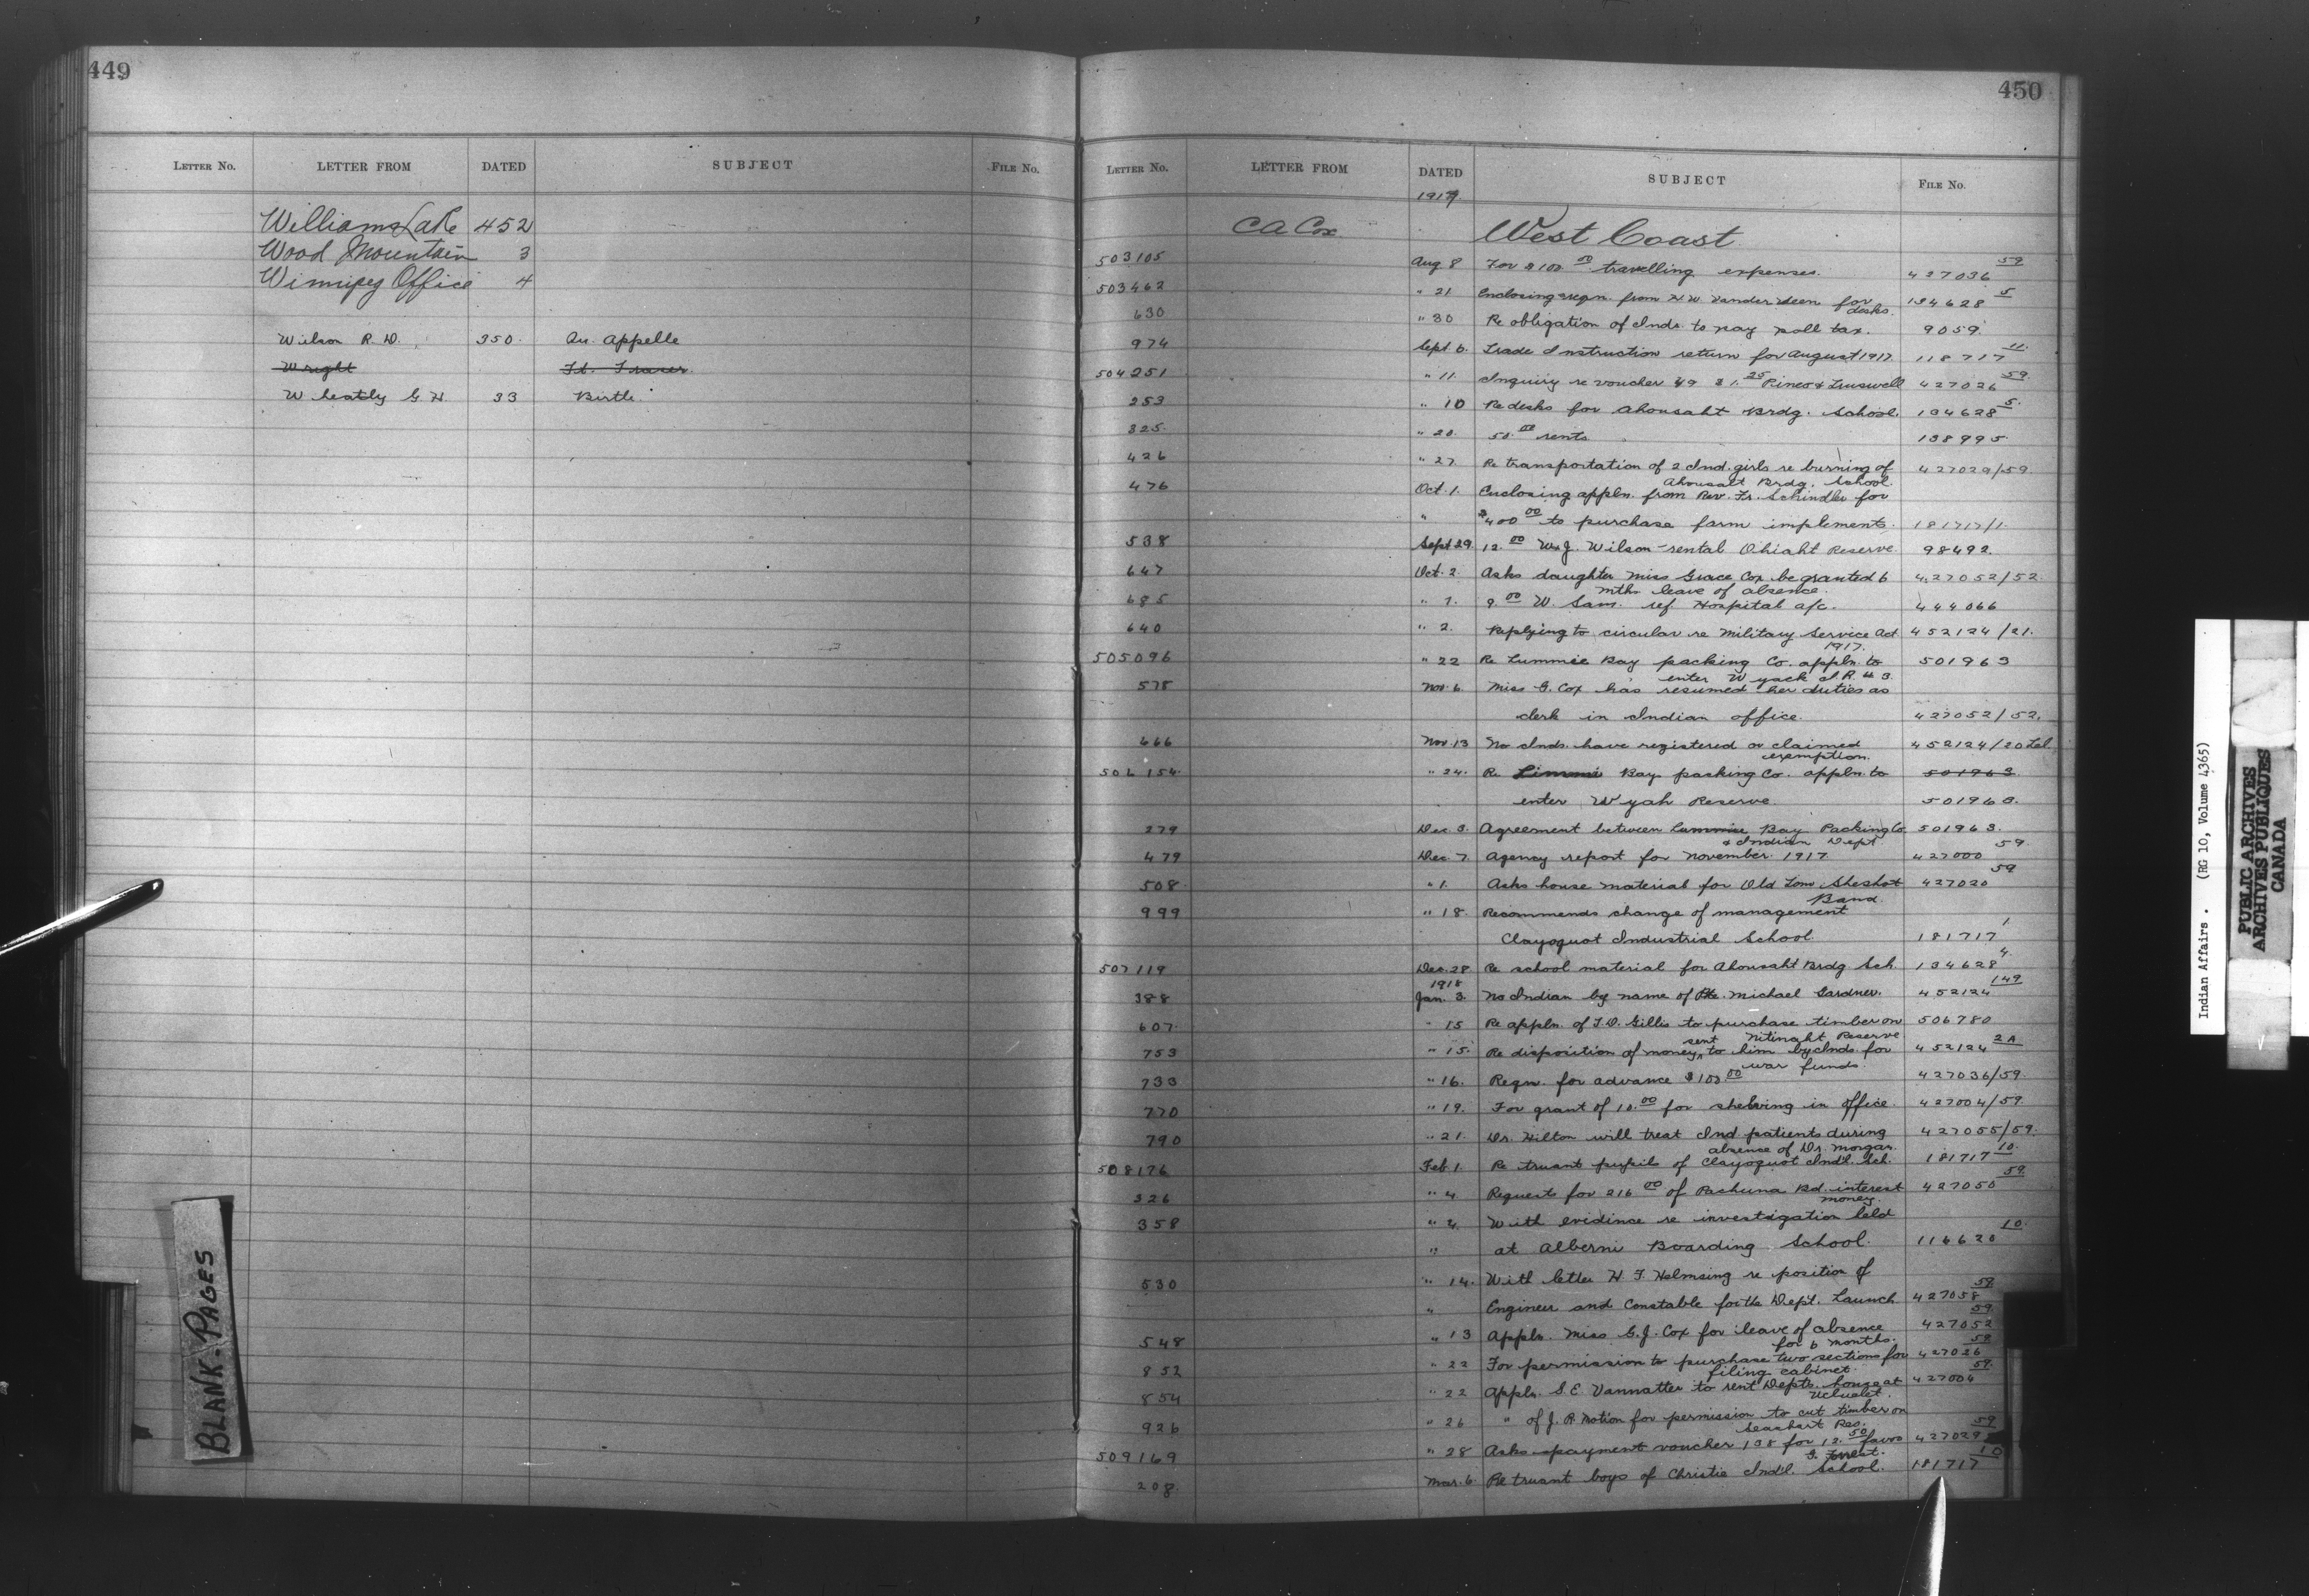 449
LETTER No. LETTER FROM DATED SUBJECT FILE No.
Williams Lake 452
Wood Mountain 3
Winnipeg Office 4
Wilson R. D. 350. Qu. Appelle
Wright Ft. Fraser
Wheatly G. H. 33 Birtle
BLANK-PAGES
450
LETTER No. LETTER FROM DATED SUBJECT FILE No.
1917
C A Cox West Coast
503105 Aug 8 For $100.00 travelling expenses. 427036 59
503462 " 21 Enclosing reqn. from H. W. Vander Veen for 134628 5
desks.
630 " 30 Re obligation of Inds. to pay poll tax. 9059.
974 Sept 6. Trade Instruction return for August 1917. 118717 11.
504251 " 11. Inquiry re voucher 49 $1.25 Pineo & Truswell 427026 59.
253 " 10 Re desks for Ahousaht Brdg. School. 134628 5.
325. " 20. 50.00 rents 138995.
426 " 27. Re transportation of 2 Ind. girls re burning of 427029/59.
Ahousaht Brdg. School.
476 Oct. 1. Enclosing appln. from Rev. Fr. Schindler for
" $400.00 to purchase farm implements. 181717/1.
538 Sept 29. 12.00 W. J. Wilson - rental Ohiaht Reserve. 98492.
647 Oct. 2. Asks daughter Miss Grace Cox be granted 6 427052/52.
mths leave of absence.
685 " 7. 9.00 W. Sam. ref. Hospital a/c. 444066
640 " 2. Replying to circular re Military Service Act 452124/21.
1917.
505096 " 22 Re Lummie Bay packing Co. appln. to 501963
enter Wyack I.R. # 3.
578 Nov. 6. Miss G. Cox has resumed her duties as
clerk in Indian office. 427052/52.
666 Nov. 13 No Inds. have registered or claimed 452124/20 Tel
exemption.
506154. " 24. Re Limmi Bay packing Co. appln. to 501963
enter Wyah Reserve. 501963.
279 Dec. 3. Agreement between Lummie Bay Packing Co. 501963.
& Indian Dept
479 Dec. 7. Agency report for November. 1917. 427000 59.
508. " 1. Asks house material for Old Tom, Sheshot 427020 59
Band.
999 " 18. Recommends change of management
Clayoquot Industrial School. 181717 1
507119 Dec. 28 Re school material for Ahousaht Brdg Sch. 134628 4.
1918
388 Jan. 3. No Indian by name of Pte. Michael Gardner. 452124 149
607. " 15 Re appln. of T. D. Gillis to purchase timber on 506780
Nitinaht Reserve
753 " 15. Re disposition of money sent to him by Inds. for 452124 2A
war funds.
733 " 16. Reqn. for advance $100.00 427036/59.
770 " 19. For grant of 10.00 for shelving in office. 427004/59.
790 " 21. Dr. Hilton will treat Ind. patients during 427055/59.
absence of Dr. Morgan.
508176 Feb. 1. Re truant pupils of Clayoquot Ind'l. Sch. 181717 10.
326 " 4 Requests for 216.00 of Pachuna Bd. interest 427050 59.
money.
358 " 4. With evidence re investigation held
" at Alberni Boarding School. 116620 10.
530 " 14. With letter H. F. Helmsing re position of
" Engineer and Constable for the Dept. Launch 427058 59
548 " 13 Appln. Miss G. J. Cox for leave of absence 427052 59
for 6 months.
852 " 22 For permission to purchase two sections for 427026 59
filing cabinet.
854 " 22 Appln. S. E. Vannatter to rent Depts. house at 427004 59.
Ucluelet.
926 " 26 " of J. R. Motion for permission to cut timber on
Seashart Res.
509169 " 28 Asks payment voucher 138 for 12.50 favor 427029 59
G. Forrest.
208. Mar. 6. Re truant boys of Christie Ind'l. School. 181717 10
Indian Affairs. (RG 10, Volume 4365)
PUBLIC ARCHIVES
ARCHIVES PUBLIQUES
CANADA